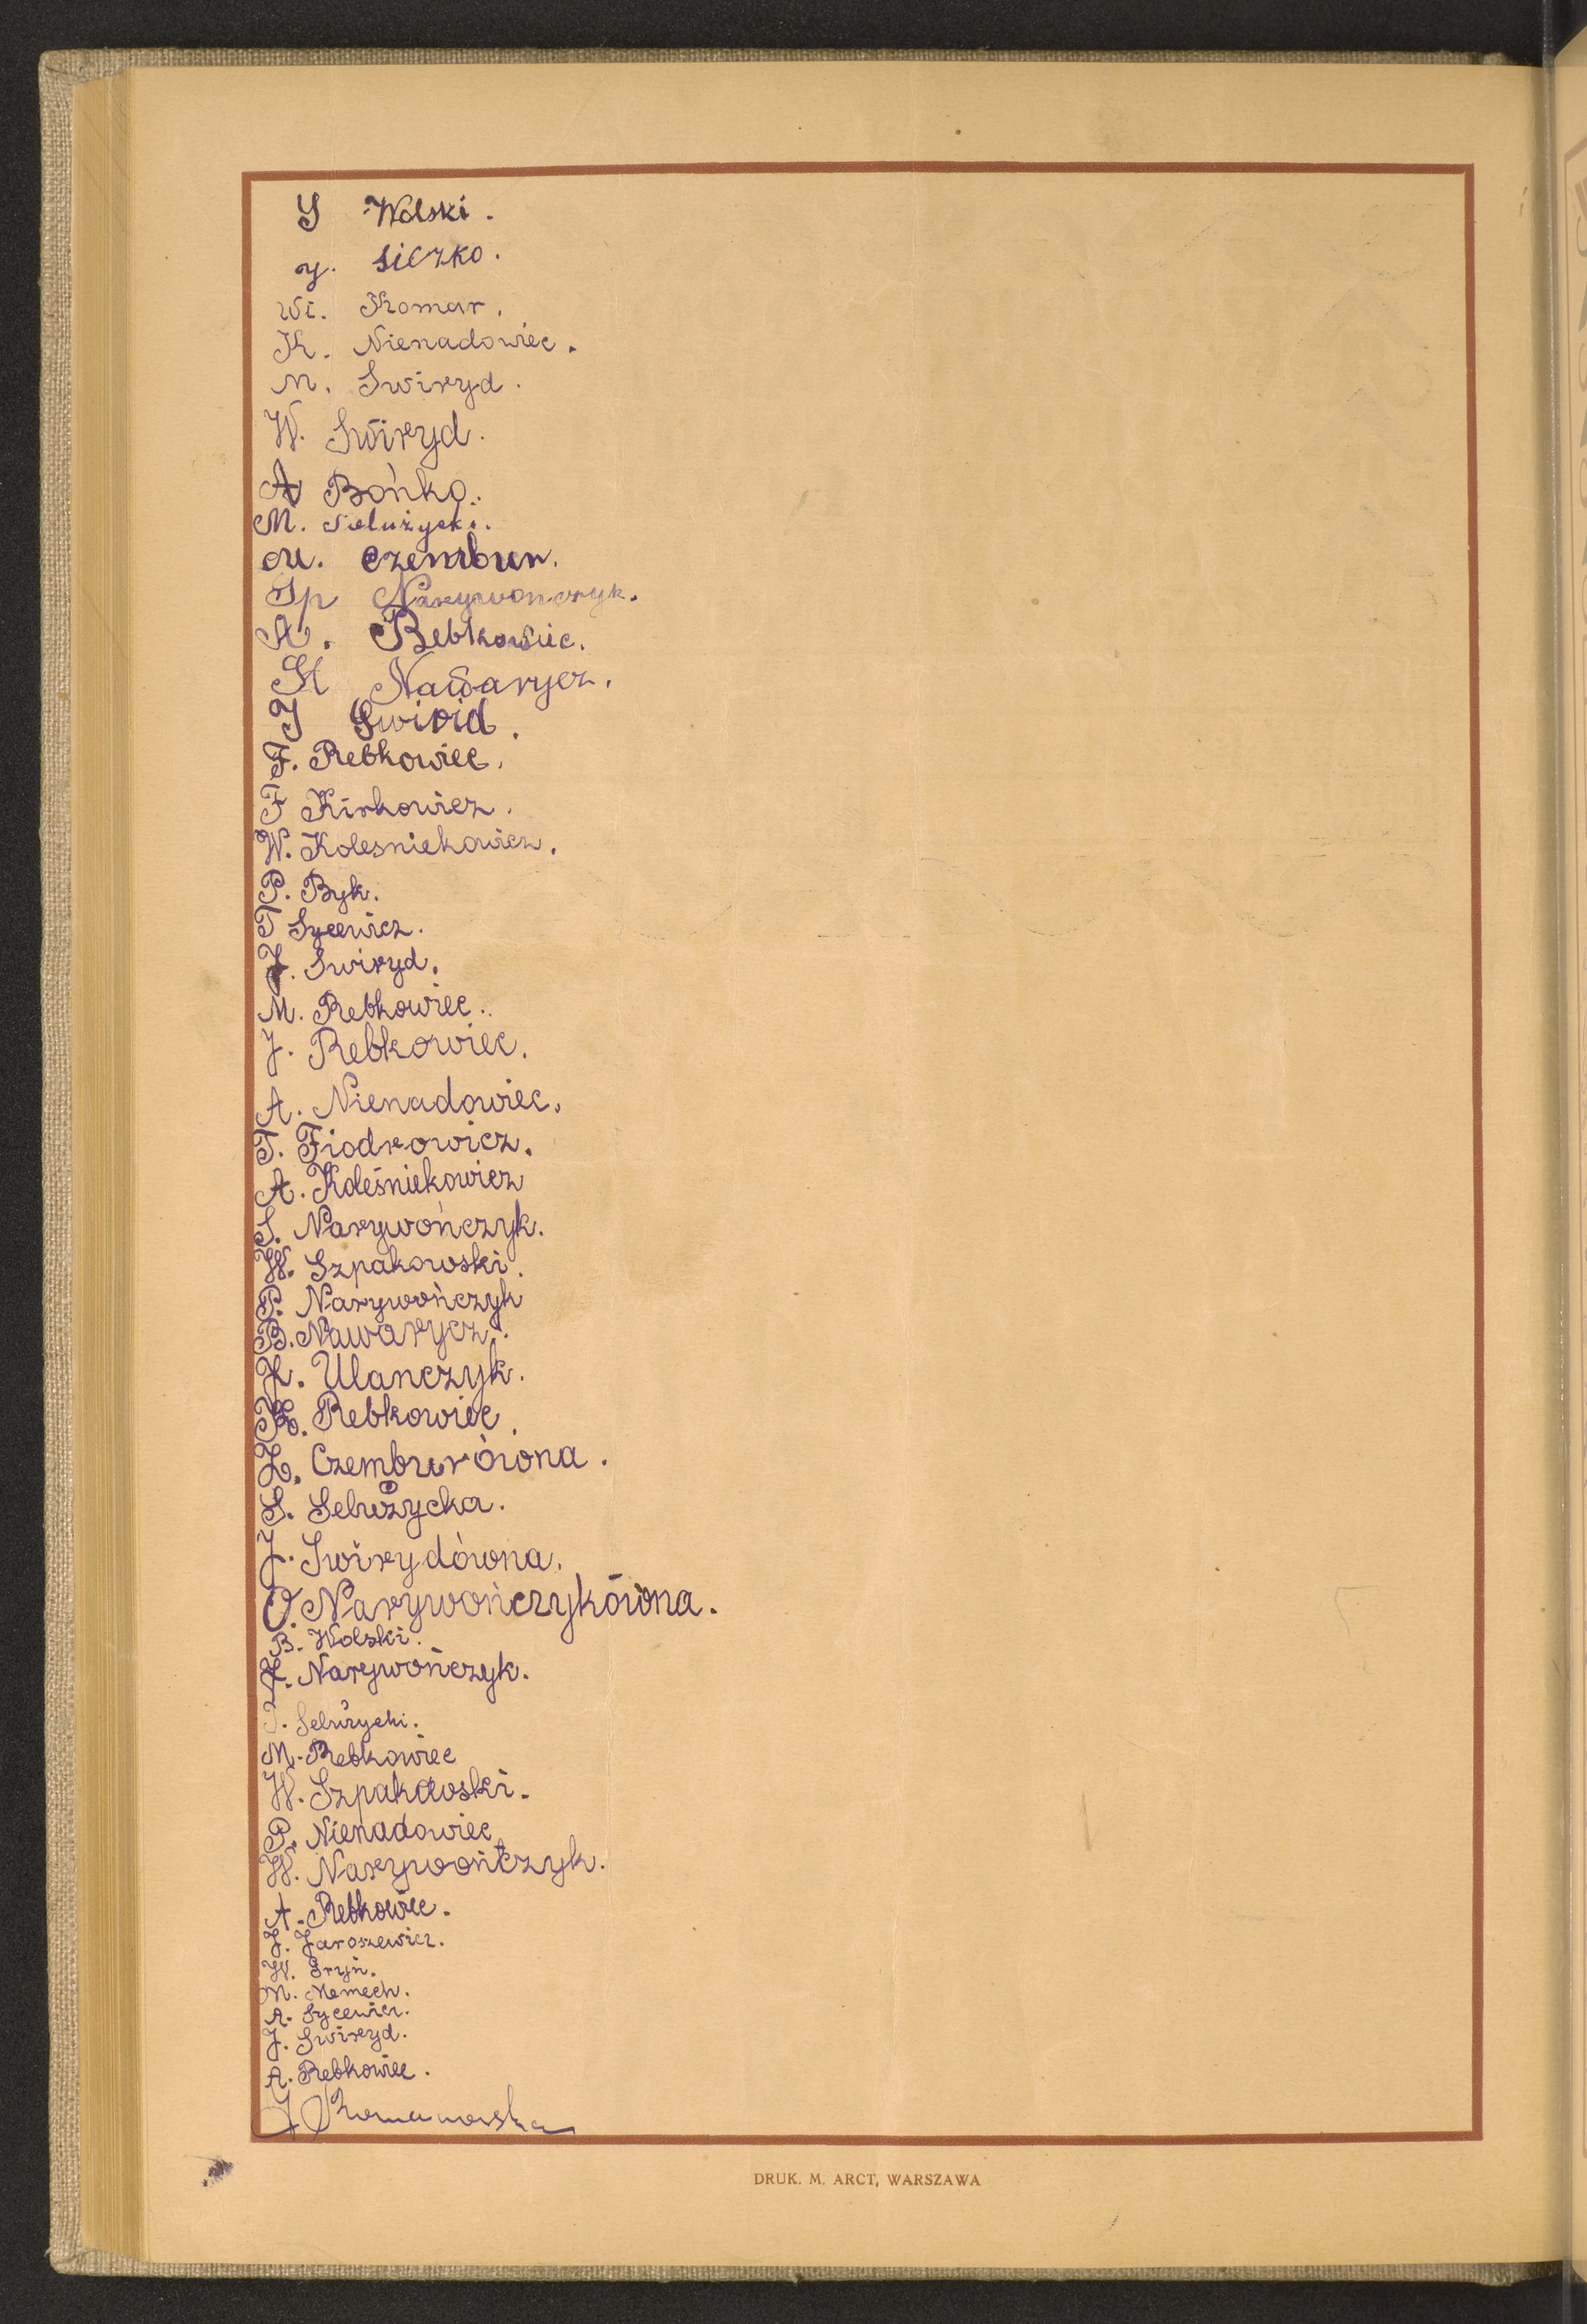 S Wolski.
y. Siczko.
Wi. Komar.
K. Nienadowiec.
M. Swiryd.
W. Swiryd.
A Bońko.
M. Sielużycki.
M. Czembur.
Sp Narywonczyk.
A. Rebkowiec.
St Nawarycz.
J Swirid.
F. Rebkowiec.
F Kirkowicz.
W. Kolesniekowicz.
P. Byk.
T Sycewicz.
J. Swiryd.
M. Rebkowiec.
J. Rebkowiec.
A. Nienadowiec.
T. Fiodrowicz.
A. Koleśniekowicz
S. Narywończyk.
W. Szpakowski.
P. Narywończyk
B. Nawarycz.
J. Ulanczyk.
Rebkowiec.
Z. Czemburówona.
S. Selużycka.
J. Swirydówna.
O. Narywończykówna.
B. Wolski.
J. Narywończyk.
J. Selużycki.
M. Rebkowiec
W. Szpakowski.
P. Nienadowiec
W. Narywończyk.
A. Rebkowiec.
J. Jaroszewicz.
W. Gryń.
M. Memech.
A. Sycewicz.
J. Swiryd.
A. Rebkowiec.
J Romanowska
DRUK. M. ARCT, WARSZAWA